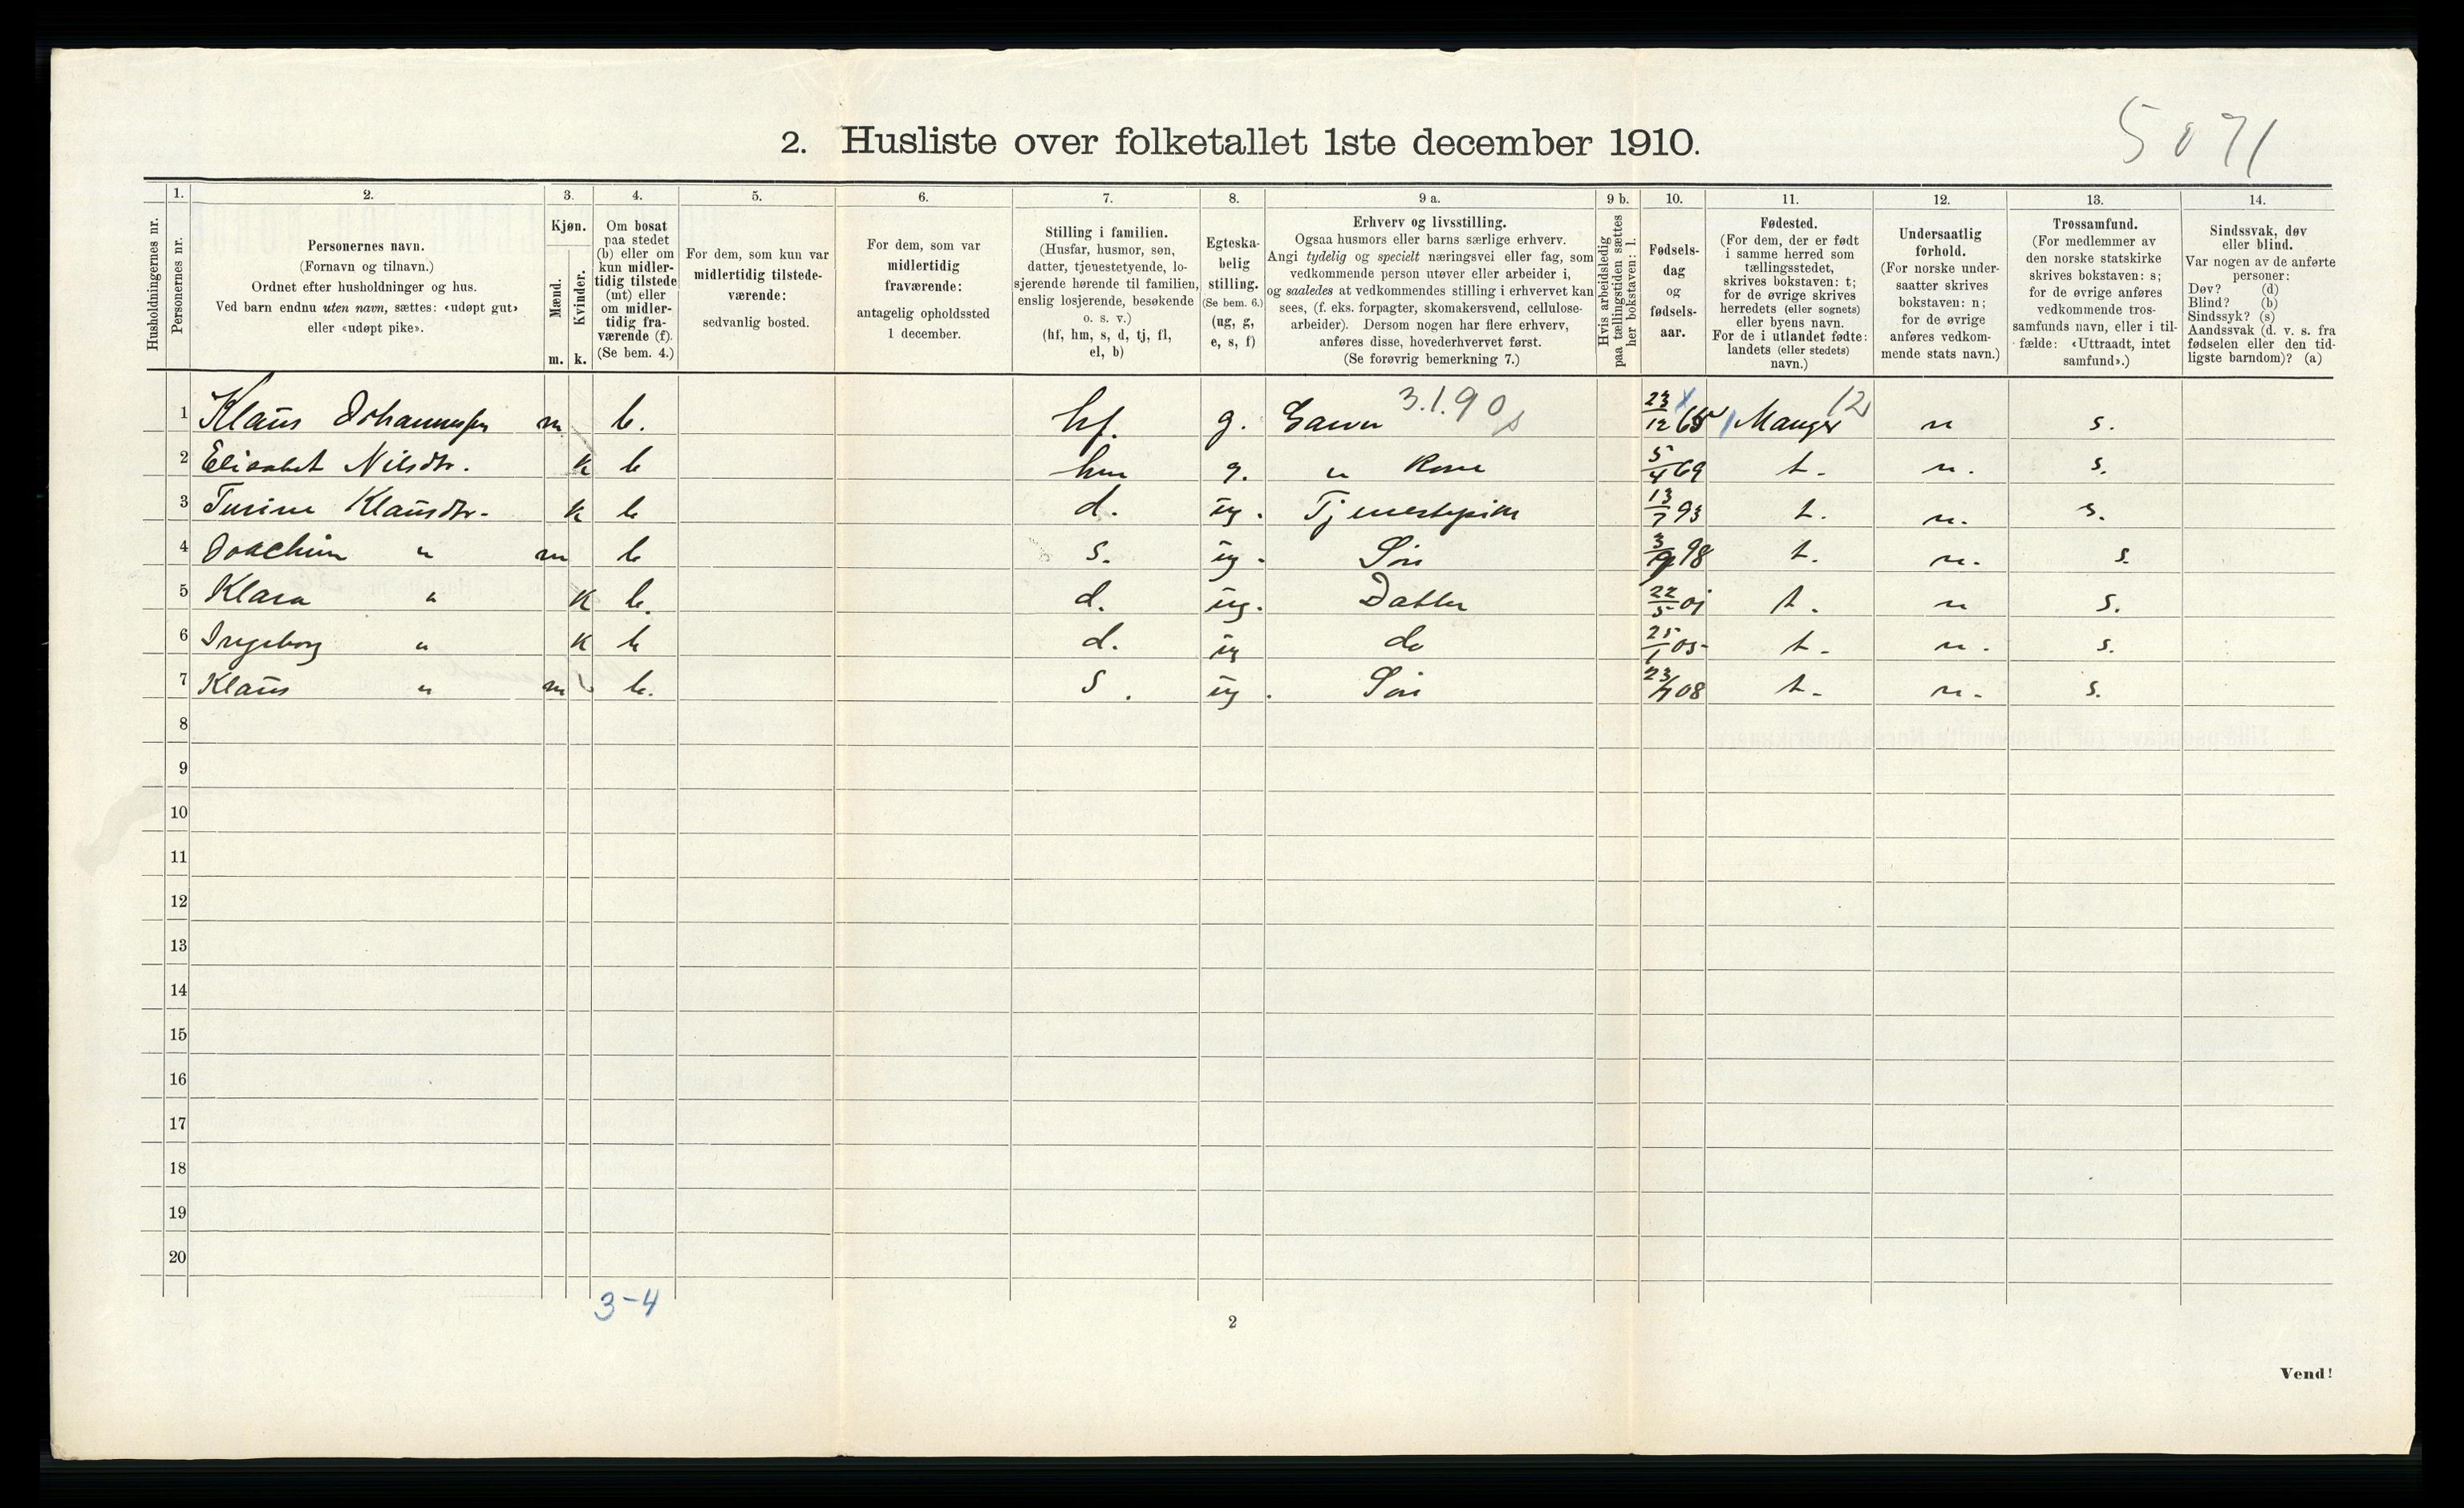 5071
2. Husliste over folketallet 1ste december 1910.
Husholdningernes nr.
1. Personernes nr.
2. Personernes navn. (Fornavn og tilnavn.) Ordnet efter husholdninger og hus. Ved barn endnu uten navn, sættes: «udøpt gut» eller «udøpt pike».
3. Kjøn. Mænd. m. Kvinder. k.
4. Om bosat paa stedet (b) eller om kun midlertidig tilstede (mt) eller om midlertidig fraværende (f). (Se bem. 4.)
5. For dem, som kun var midlertidig tilstedeværende: sedvanlig bosted.
6. For dem, som var midlertidig fraværende: antagelig opholdssted 1 december.
7. Stilling i familien. (Husfar, husmor, søn, datter, tjenestetyende, losjerende hørende til familien, enslig losjerende, besøkende o. s. v.) (hf, hm, s, d, tj, fl, el, b)
8. Egteskabelig stilling. (Se bem. 6.) (ug, g, e, s, f)
9 a. Erhverv og livsstilling. Ogsaa husmors eller barns særlige erhverv. Angi tydelig og specielt næringsvei eller fag, som vedkommende person utøver eller arbeider i, og saaledes at vedkommendes stilling i erhvervet kan sees, (f. eks. forpagter, skomakersvend, cellulosearbeider). Dersom nogen har flere erhverv, anføres disse, hovederhvervet først. (Se forøvrig bemerkning 7.)
9 b. Hvis arbeidsledig paa tællingstiden sættes her bokstaven: l.
10. Fødselsdag og fødselsaar.
11. Fødested. (For dem, der er født i samme herred som tællingsstedet, skrives bokstaven: t; for de øvrige skrives herredets (eller sognets) eller byens navn. For de i utlandet fødte: landets (eller stedets) navn.)
12. Undersaatlig forhold. (For norske undersaatter skrives bokstaven: n; for de øvrige anføres vedkommende stats navn.)
13. Trossamfund. (For medlemmer av den norske statskirke skrives bokstaven: s; for de øvrige anføres vedkommende trossamfunds navn, eller i tilfælde: «Uttraadt, intet samfund».)
14. Sindssvak, døv eller blind. Var nogen av de anførte personer: Døv? (d) Blind? (b) Sindssyk? (s) Aandssvak (d. v. s. fra fødselen eller den tidligste barndom)? (a)
1 Klaus Johannessen m b. hf. g. Garver 3.1.90 23/12 65 Manger 12 n s.
2 Elisabet Nilsdtr. k b hm g. " Kone 5/4 69 t. n. s.
3 Turine Klausdtr. k b d. ug. Tjenestepike 13/7 93 t. n. s.
4 Joachim " m b s. ug. Søn 3/9 98 t. n. s.
5 Klara " k b. d. ug. Datter 22/5 01 t. n s.
6 Ingeborg " k b d. ug do 25/1 05 t. n. s.
7 Klaus " m b. s. ug. Søn 23/7 08 t. n. s.
8
9
10
11
12
13
14
15
16
17
18
19
20
3-4
2
Vend!